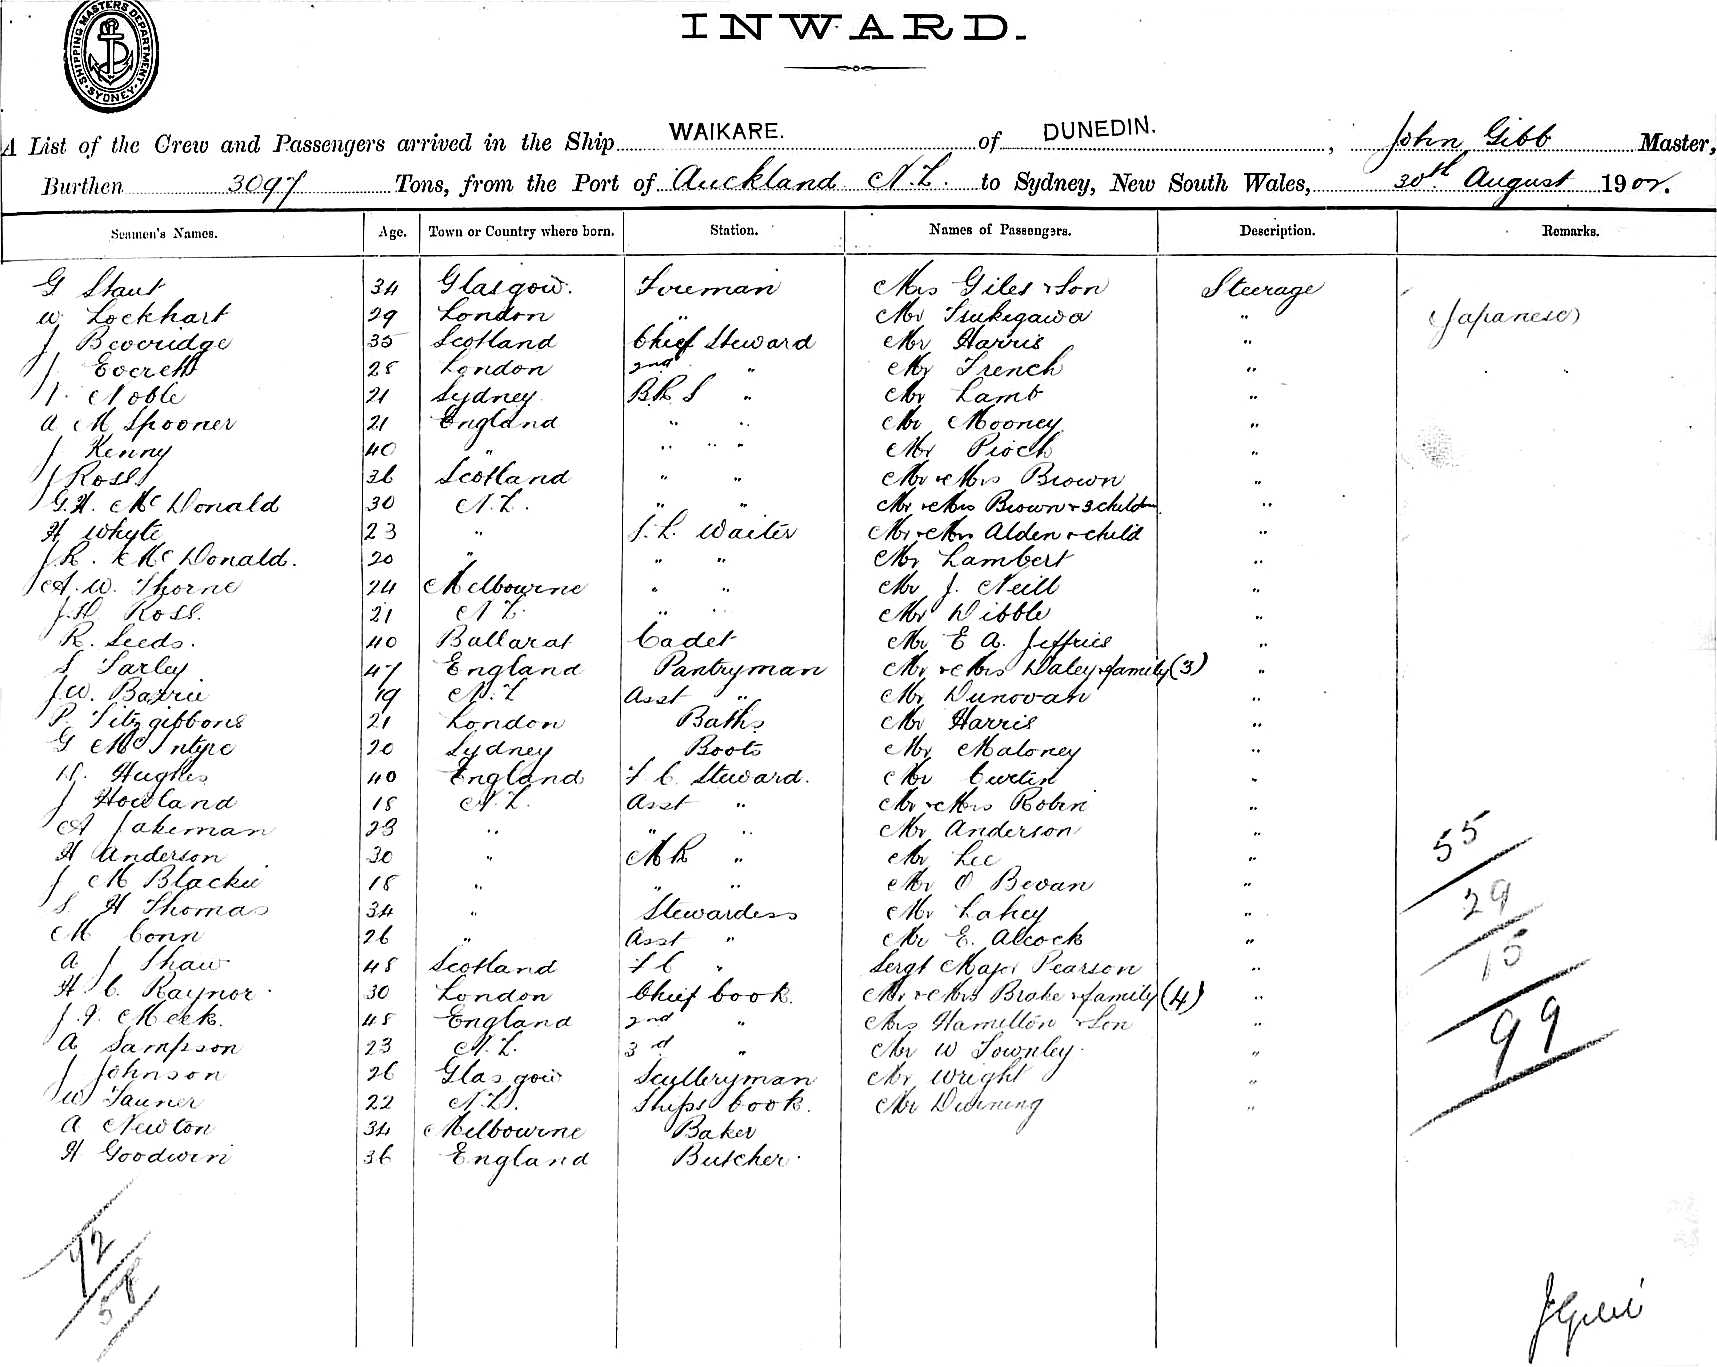 SHIPPING MASTERS DEPARTMENT SYDNEY
INWARD.
A List of the Crew and Passengers arrived in the Ship WAIKARE. of DUNEDIN. , John Gibb Master,
Burthen 3097 Tons, from the Port of Auckland N.Z. to Sydney, New South Wales, 30th August 1902.
Seamen's Names. Age. Town or Country where born. Station. Names of Passengers. Description. Remarks.
G Staut 34 Glasgow. Foreman Mrs Giles & Son Steerage
W Lockhart 29 London " Mr Tsukigawa " (Japanese)
J Beveridge 35 Scotland Chief Steward Mr Harris "
J Everett 28 London 2nd " Mr French "
Noble 21 Sydney B.R S " Mr Lamb "
A M Spooner 21 England " " Mr Mooney "
J Kenny 40 " " " " Mr Pioch "
J Ross 36 Scotland " " Mr & Mrs Brown "
G.H. McDonald 30 N.Z. " " Mr & Mrs Brown & 3 children "
H Whyte 23 " S.L. Waiter Mr & Mrs Alden & child "
J R. McDonald. 20 " " " Mr Lambert "
A.W. Thorne 24 Melbourne " " Mr J. Neill "
J.H. Ross. 21 N Z. " " Mr Dibble "
R. Leeds. 40 Ballarat Cadet Mr E A. Jeffries "
S Farley 47 England Pantryman Mr & Mrs Daley & family (3) "
J.W. Barrie 19 N.Z Asst " Mr Dunovan "
P. Fitzgibbons 21 London Baths Mr Harris "
G McIntyre 20 Sydney Boots Mr Maloney "
H. Hughes 40 England F C. Steward. Mr Curtin "
J Howland 18 N.Z. Asst " Mr & Mrs Robin "
A Jakeman 23 " " " Mr Anderson "
H Anderson 30 " M R " Mr Lee "
J M Blackie 18 " " " Mr O Bevan "
S. H Thomas 34 " Stewardess Mr Lahey "
M Conn 26 " Asst " Mr E. Alcock "
A J Shaw 48 Scotland F C " Sergt Major Pearson "
H C. Raynor 30 London Chief Cook. Mr & Mrs Brake & family (4) "
J.F. Meek. 48 England 2nd " Mrs Hamilton & Son "
A Sampson 23 N.Z. 3rd " Mr W Townley "
J Johnson 26 Glasgow Sculleryman Mr Wright "
W Tauner 22 N.Z. Ships Cook. Mr Durning "
A Newton 34 Melbourne Baker
H Goodwin 36 England Butcher
55
29
15
99
92
58
JGibb